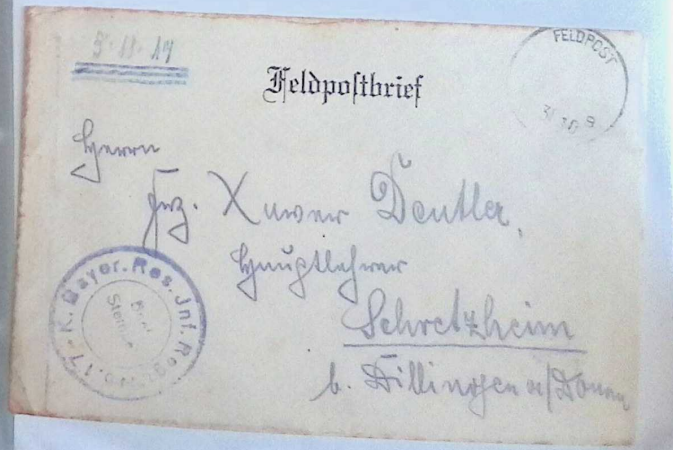 5.11.14
Feldpostbrief
FELDPOST
Herrn
Frz. Xaver Deutler,
Hauptlehrer
Schretzheim
b. Dillingen a/Donau
K. Bayer. Res. Inf. Reg. No. 17